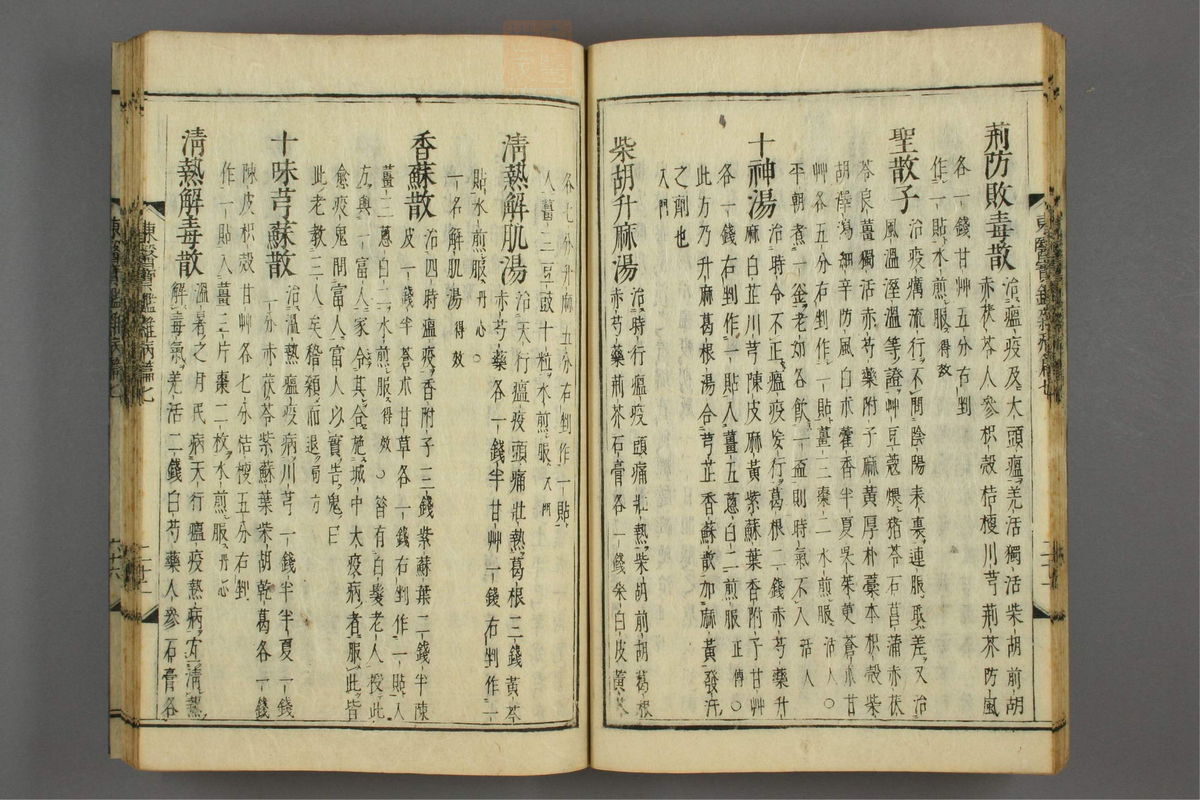 荊防敗毒散治瘟疫及大頭瘟羌活獨活柴胡前胡
赤茯苓人參枳殼桔梗川芎荊芥防風
各一錢甘艸五分右剉
作一貼水煎服得效
聖散子治疫癘流行不問陰陽表裏連服取差又治
風溫溼溫等證艸豆蔲煨猪苓石菖蒲赤茯
苓良薑獨活赤芍藥附子麻黃厚朴藁本枳殼柴
胡澤瀉細辛防風白朮藿香半夏吳茱萸蒼朮甘
艸各五分右剉作一貼薑三棗二水煎服活人○
平朝煮一釜老幼各飮一盃則時氣不入活人
十神湯治時令不正瘟疫妄行葛根二錢赤芍藥升
麻白芷川芎陳皮麻黃紫蘇葉香附子甘艸
各一錢右剉作一貼入薑五葱白二煎服正傳○
此方乃升麻葛根湯合芎芷香蘇散加麻黃發汗
之劑也
入門
柴胡升麻湯治時行瘟疫頭痛壯熱柴胡前胡葛根
赤芍藥荊芥石膏各一錢桑白皮黃芩
各七分升麻五分右剉作一貼
入薑三豆豉十粒水煎服入門
淸熱解肌湯治天行瘟疫頭痛壯熱葛根三錢黃芩
赤芍藥各一錢半甘艸一錢右剉作一
貼水煎服丹心○
一名解肌湯得效
香蘇散治四時瘟疫香附子三錢紫蘇葉二錢半陳
皮一錢半蒼朮甘草各一錢右剉作一貼入
薑三葱白二水煎服得效○昔有白髮老人授此
方與一富人家合其合施城中大疫病者服此皆
愈疫鬼問富人富人以實告鬼曰
此老敎三人矣稽顙而退局方
十味芎蘇散治溫熱瘟疫病川芎一錢半半夏一錢
一分赤茯苓紫蘇葉柴胡乾葛各一錢
陳皮枳殼甘艸各七分桔梗五分右剉
作一貼入薑三片棗二枚水煎服丹心
淸熱解毒散溫暑之月民病天行瘟疫熱病宜淸熱
解毒氣羌活二錢白芍藥人參石膏各
東醫寶鑑雜病篇七
二十六